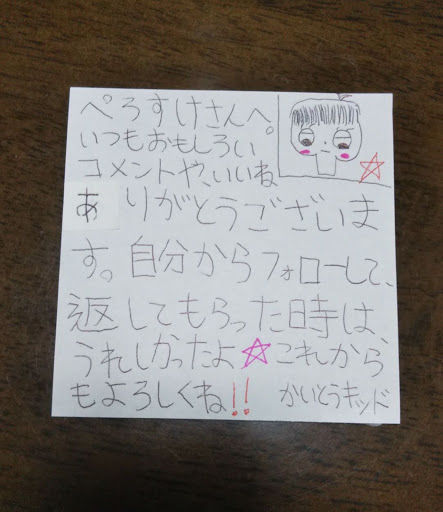 ぺろすけさんへ。
いつもおもしろい
コメントや、いいね
ありがとうございま
す。自分からフォローして、
返してもらった時は、
うれしかったよ☆これから
もよろしくね!! かいとうキッド